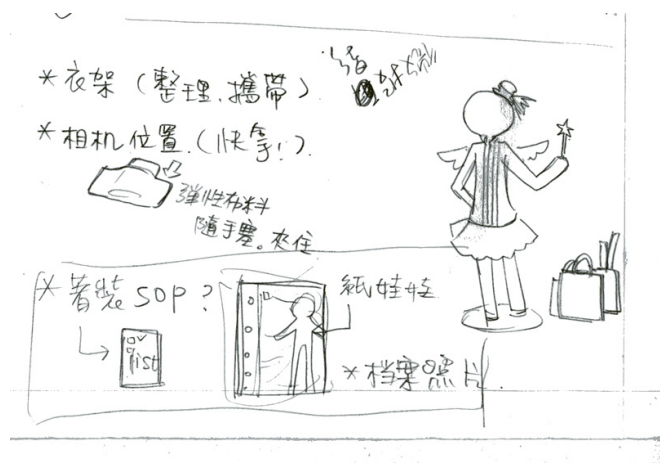 *衣架(整理、攜帶)
*相机位置.(快拿!).
彈性布料
隨手塞。夾住
*著裝SOP?
list
紙娃娃
*档案照片